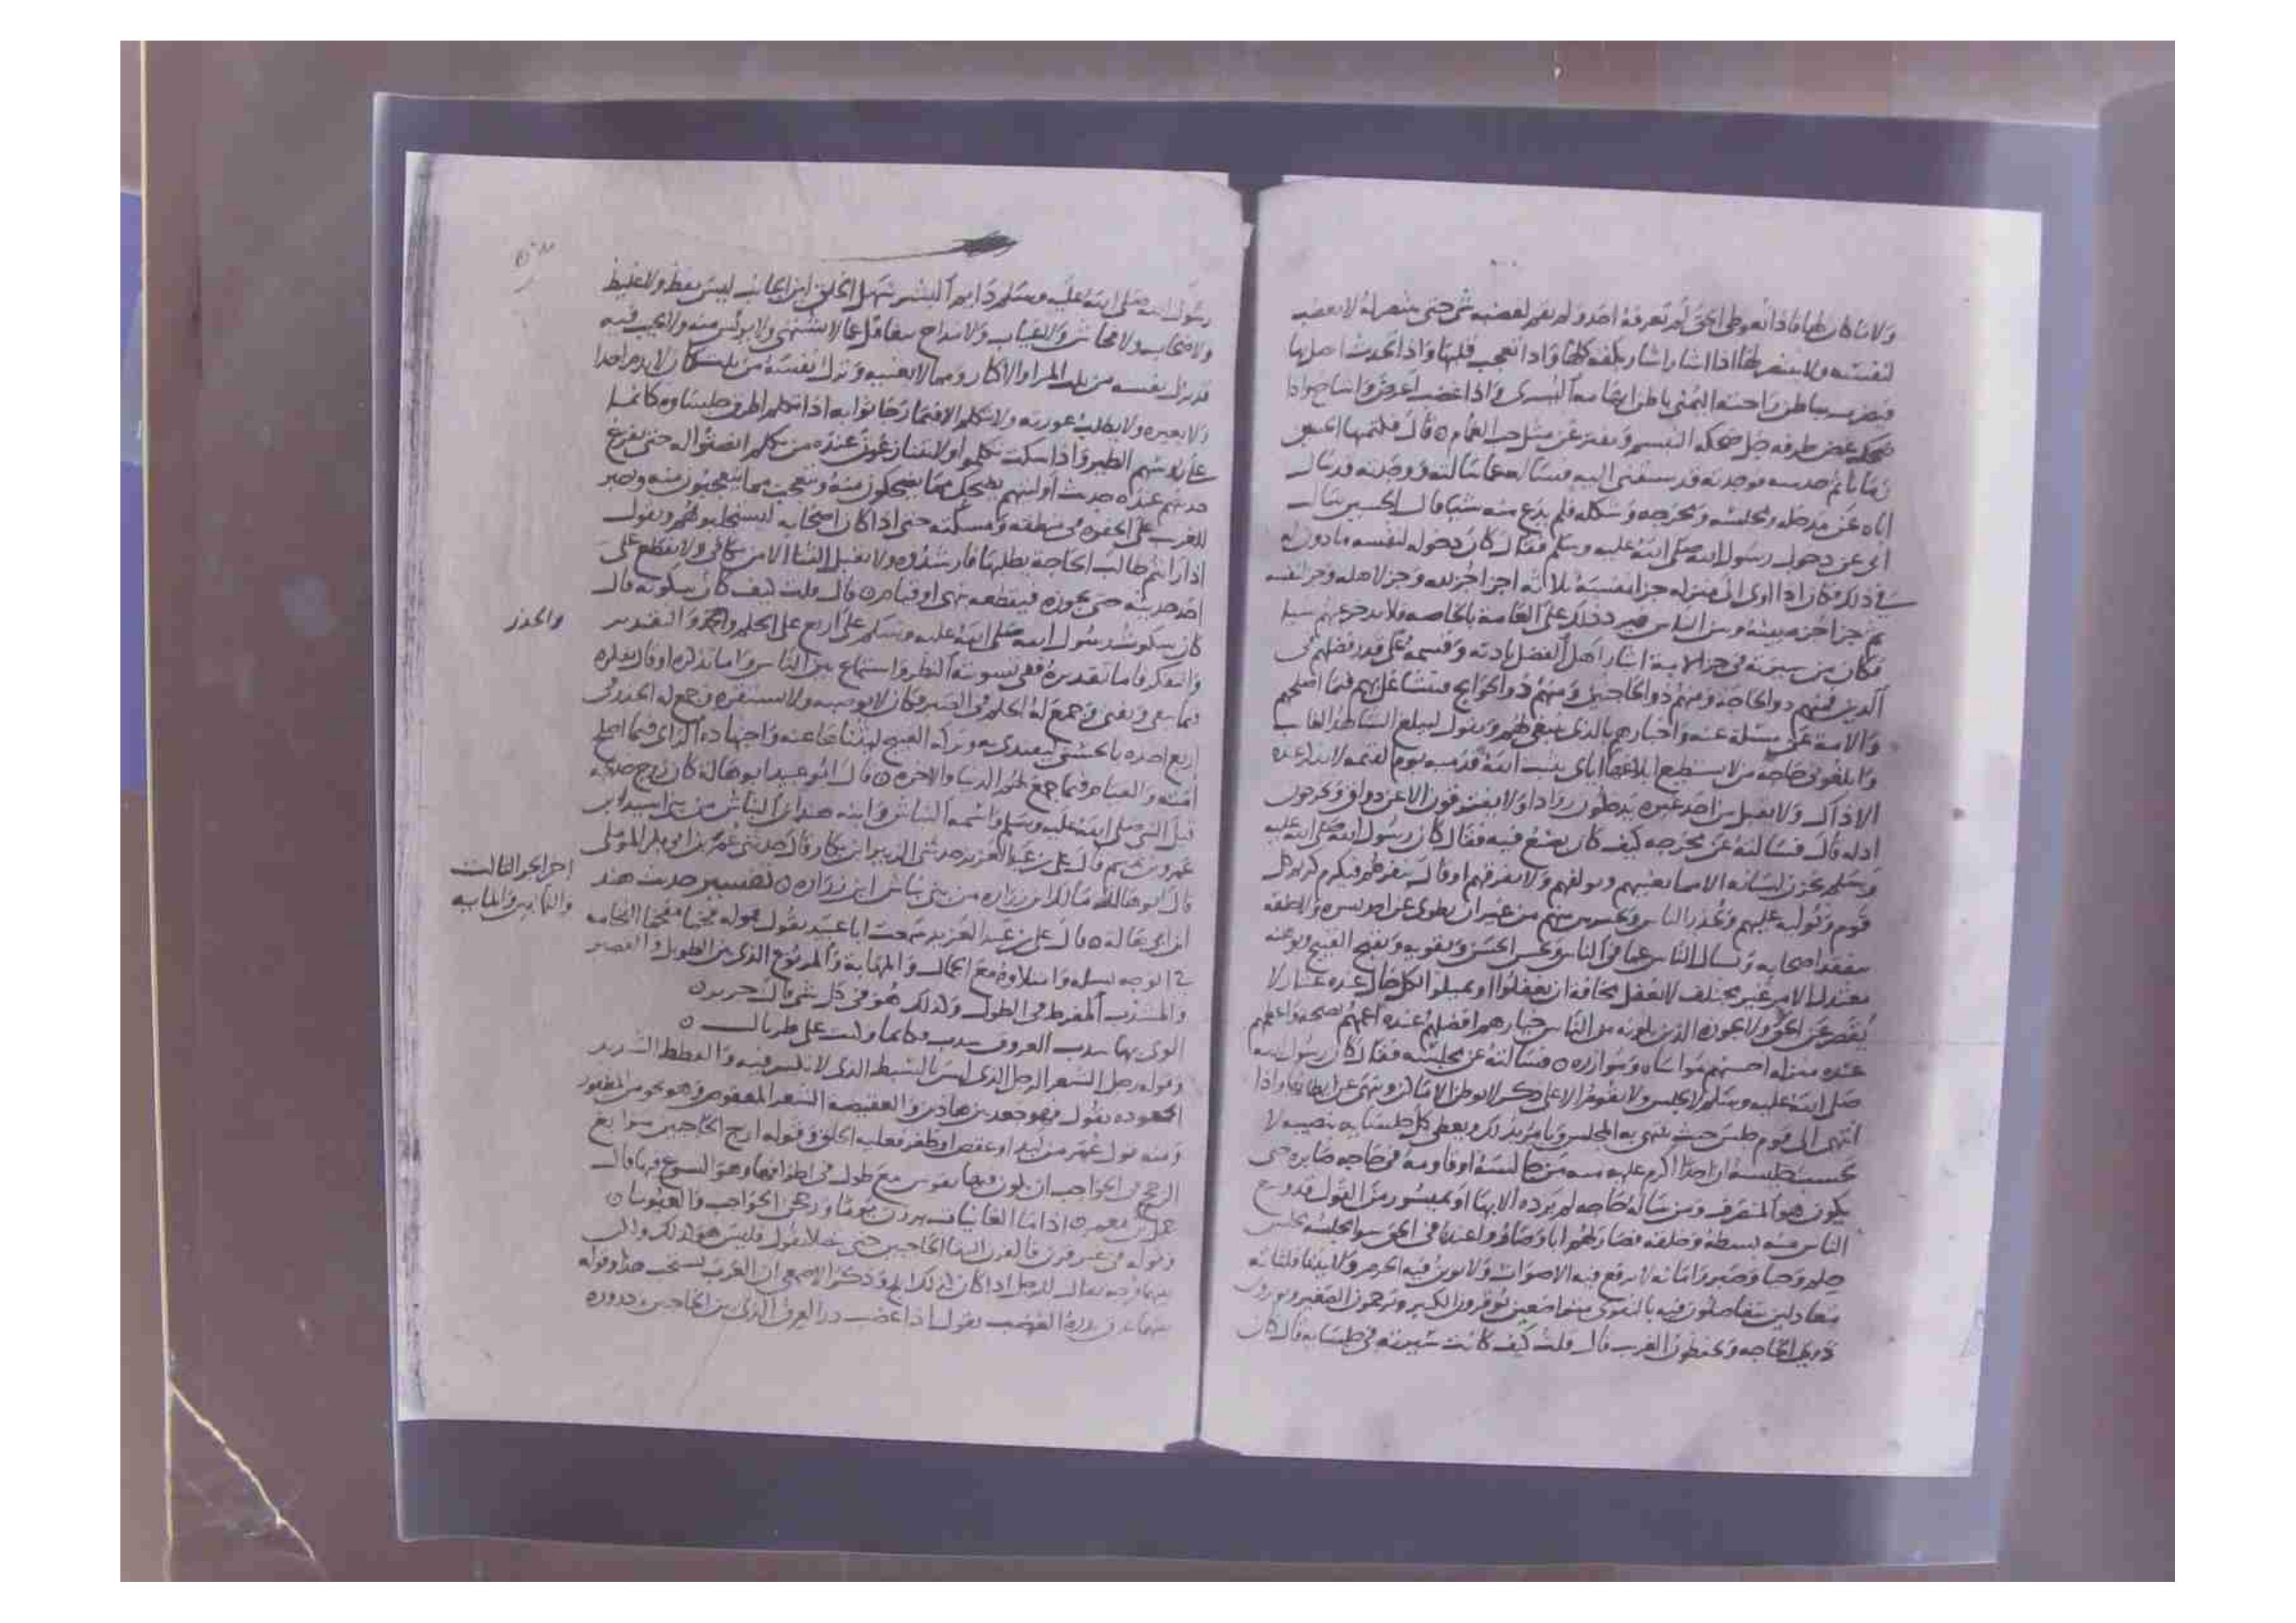 ولا ما كان لها فاذا تعوطي الحق لم تعرفه احد ولم يقم لغضبه شي حتى ينتصر له لا يغضب
لنفسه ولا ينتصر لها اذا اشار اشار بكفه كلها واذا تعجب قلبها واذا تحدث اتصل بها
فيضرب بباطن راحته اليمنى باطن ابهامه اليسرى واذا غضب اعرض واشاح واذا
ضحك غض طرفه جل ضحكه التبسم ويفتر عن مثل حب الغمام قال فكتمتها الحسين
زمانا ثم حدثته فوجدته قد سبقني اليه فساله عما سالته ووجدته قد سال
اباه عن مدخله ومجلسه ومخرجه وشكله فلم يدع منه شيا قال الحسين سالت
ابي عن دخول رسول الله صلى الله عليه وسلم فقال كان دخوله لنفسه ماذون له
في ذلك فكان اذا اوى الى منزله جزا نفسه ثلاثة اجزا جز لله وجز لاهله وجز لنفسه
ثم جزا جزه بينه وبين الناس فيرد ذلك على العامة بالخاصه ولا يدخر عنهم شيا
فكان من سيرته في جز الامة ايثار اهل الفضل باذنه وقسمه على قدر فضلهم في
الدين فمنهم ذو الحاجة ومنهم ذو الحاجتين ومنهم ذو الحوايج فيتشاغل بهم فيما اصلحهم
والامة عن مسئلة عنه واخبارهم بالذي ينبغي لهم ويقول ليبلغ الشاهد الغايب
وابلغوني حاجة من لا يستطيع ابلاغها اياي يثبت الله قدميه يوم القيمه لا يذكر عنده
الا ذاك ولا يقبل من احد غيره يدخلون روادا ولا يفترقون الا عن ذواق ويخرجون
ادله قال فسالته عن مخرجه كيف كان يصنع فيه فقال كان رسول الله صلى الله عليه
وسلم يخزن لسانه الا مما يعنيهم ويولفهم ولا يفرقهم او قال ينفرهم فيكرم كريم كل
قوم ويوليه عليهم ويحذر الناس ويحترس منهم من غير ان يطوي عن احد بشره ولا خلقه
يتفقد اصحابه ويسال الناس عما في الناس ويحسن الحسن ويقويه ويقبح القبيح ويوهنه
معتدل الامر غير مختلف لا يغفل مخافة ان يغفلوا او يميلوا لكل حال عنده عتاد لا
يقصر عن الحق ولا يجوزه الذين يلونه من الناس خيارهم افضلهم عنده اعمهم نصيحة واعظمهم
عنده منزله احسنهم مواساه وموازره فسالته عن مجلسه فقال كان رسول الله
صلى الله عليه وسلم لا يجلس ولا يقوم الا على ذكر لا يوطن الاماكن وينهى عن ايطانها واذا
انتهى الى قوم جلس حيث ينتهي به المجلس ويامر بذلك ويعطي كل جلسايه نصيبه لا
يحسب جليسه ان احدا اكرم عليه منه من جالسه او قاومه في حاجه صابره حتى
يكون هو المنصرف ومن ساله حاجه لم يرده الا بها او بميسور من القول قد وسع
الناس منه بسطه وخلقه فصار لهم ابا وصاروا عنده في الحق سوا مجلسه مجلس
حلم وحيا وصبر وامانه لا يرفع فيه الاصوات ولا توبن فيه الحرم ولا ينثا فلتاته
متعادلين يتفاضلون فيه بالتقوى متواضعين يوقرون الكبير ويرحمون الصغير ويوثرون
ذوي الحاجه ويحفظون الغريب قال قلت كيف كانت سيرته في جلسايه قال كان
رسول الله صلى الله عليه وسلم دايم البشر سهل الخلق لين الجانب ليس بفظ ولا غليظ
ولا صخاب ولا فحاش ولا عياب ولا مداح يتغافل عما لا يشتهي ولا يويس منه ولا يجيب فيه
قد ترك نفسه من ثلث المرا والاكثار ومما لا يعنيه وترك نفسه من ثلث كان لا يذم احدا
ولا يعيره ولا يطلب عورته ولا يتكلم الا فيما رجا ثوابه اذا تكلم اطرق جلساوه كانما
على روسهم الطير واذا سكت تكلموا ولا يتنازعون عنده من تكلم انصتوا له حتى يفرغ
حديثهم عنده حديث اوليهم يضحك مما يضحكون منه ويتعجب مما يتعجبون منه ويصبر
للغريب على الجفوه في منطقه ومسئلته حتى اذا كان اصحابه ليستجلبونهم ويقول
اذا رايتم طالب الحاجة يطلبها فارشدوه ولا يقبل الثنا الا من مكافي ولا يقطع على
احد حديثه حتى يجوزه فيقطعه بنهي او قيام قال قلت كيف كان سكوته قال
كان سكوت رسول الله صلى الله عليه وسلم على اربع على الحلم والحذر والتقدير
والحذر
والتفكر فاما تقديره ففي تسوية النظر واستماع بين الناس واما تذكره او قال تفكره
فيما يبقى ويفنى وجمع له الحلم في الصبر فكان لا يوصبه ولا يستفزه وجمع له الحذر في
اربع اخذه بالحسنى ليقتدى به وتركه القبيح ليتناهى عنه واجتهاده الراي فيما اصلح
امته والقيام فيما جمع لهم الدنيا والاخره قال ابو عبيد ابو هالة كان زوج خديجه
قبل النبي صلى الله عليه وسلم واسمه النباش وابنه هند ابن النباش من بني اسيد ابن
عمرو بن تميم قال علي بن عبد العزيز حدثني الزبير ابن بكار قال حدثني عمر بن ابي بكر الموصلي
اخر الجز الثالث
والثمانين والمايه
قال ابو هالة مالك ابن زراره من بني نباش ابن زراره تفسير حديث هند
ابن ابي هالة قال علي بن عبد العزيز سمعت ابا عبيد يقول قوله فخما مفخما الفخامه
في الوجه نبله وامتلاوه مع الجمال والمهابة والمربوع الذي بين الطويل والقصير
والمشذب المفرط في الطول وكذلك هو في كل شي قال جرير
الوى بها شذب العروق مشذب فكانما وكنت على طربال
وقوله رجل الشعر الرجل الذي ليس بالسبط الذي لا تكسر فيه والقطط الشديد
الجعوده يقول فهو جعد بين هاذين والعقيصة الشعر المعقوص وهو نحو من المظفور
ومنه قول عمر من لبد او عقص او ظفر فعليه الحلق وقوله ازج الحاجبين سوابغ
الزجج في الحواجب ان يكون فيها تقوس مع طول في اطرافها وهو السبوغ فيها قال
اذا ما الغانيات برزن يوما وزججن الحواجب والعيونا
وقوله في غير قرن فالقرن التقا الحاجبين حتى يتصلا يقول فليس هو كذلك
بينهما فرجه يقال للرجل اذا كان كذلك ابلج وذكر الاصمعي ان العرب تستحب هذا وقوله
بينهما عرق يدره الغضب يقول اذا غضب در العرق الذي بين الحاجبين ودروره